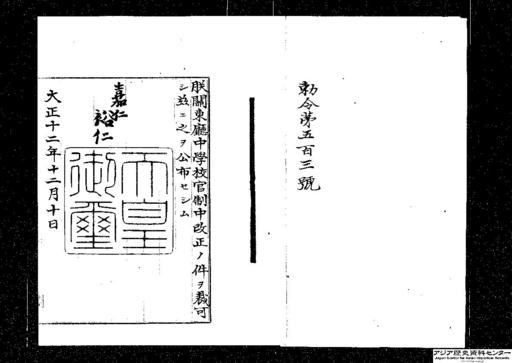 勅令第五百三號
朕關東廳中學校官制中改正ノ件ヲ裁可
シ玆ニ之ヲ公布セシム
嘉仁
裕仁
天皇
御璽
大正十二年十二月十日
アジア歴史資料センター
Japan Center for Asian Historical Records